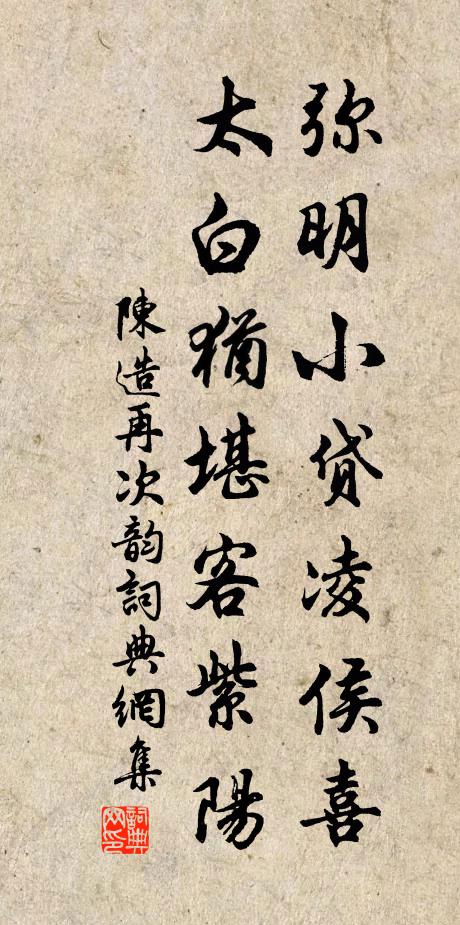 弥明小貸凌侯喜
太白猶堪客紫陽
陳造再次韵詞典網集
詞典网印